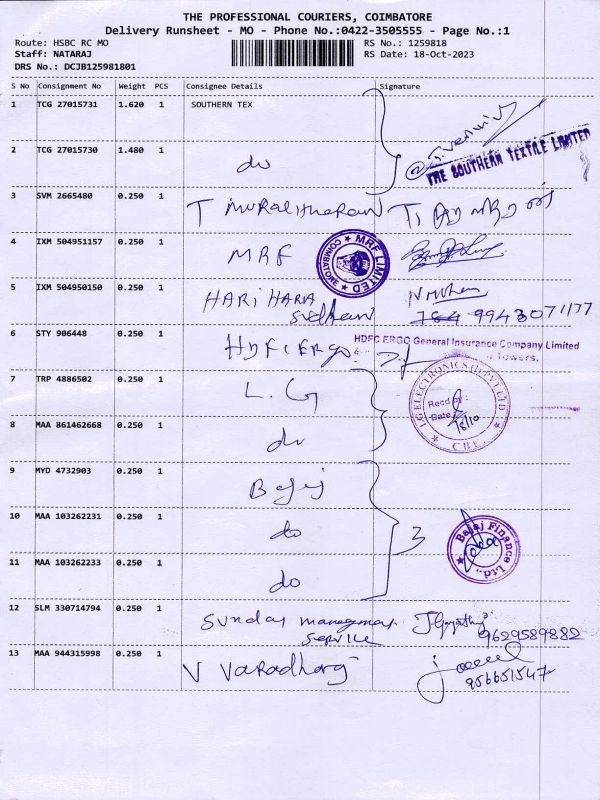 THE PROFESSIONAL COURIERS, COIMBATORE
Delivery Runsheet - MO - Phone No.:0422-3505555 - Page No.:1
Route: HSBC RC MO
RS No.: 1259818
Staff: NATARAJ
RS Date: 18-Oct-2023
DRS No.: DCJB125981801
S No Consignment No Weight PCS Consignee Details Signature
1 TCG 27015731 1.620 1 SOUTHERN TEX
THE SOUTHERN TEXTILE LIMITED
2 TCG 27015730 1.480 1 do
3 SVM 2665480 0.250 1 T Muralitharan
4 IXM 504951157 0.250 1 MRF
MRF LIMITED
COIMBATORE
5 IXM 504950150 0.250 1 HARI HARA
Sudhan
9943071177
6 STY 906448 0.250 1 HDFC Ergo
HDFC ERGO General Insurance Company Limited
Towers,
7 TRP 4886502 0.250 1 L.G
LG ELECTRONICS (I) PVT LTD
Recd by :
Date
18/10
C B E.
8 MAA 861462668 0.250 1 do
9 MYD 4732903 0.250 1 Bajaj
10 MAA 103262231 0.250 1 do 3
Bajaj Finance Ltd.,
11 MAA 103262233 0.250 1 do
12 SLM 330714794 0.250 1 Sunday management
service
9629589882
13 MAA 944315998 0.250 1 V Varadharaj
956651547